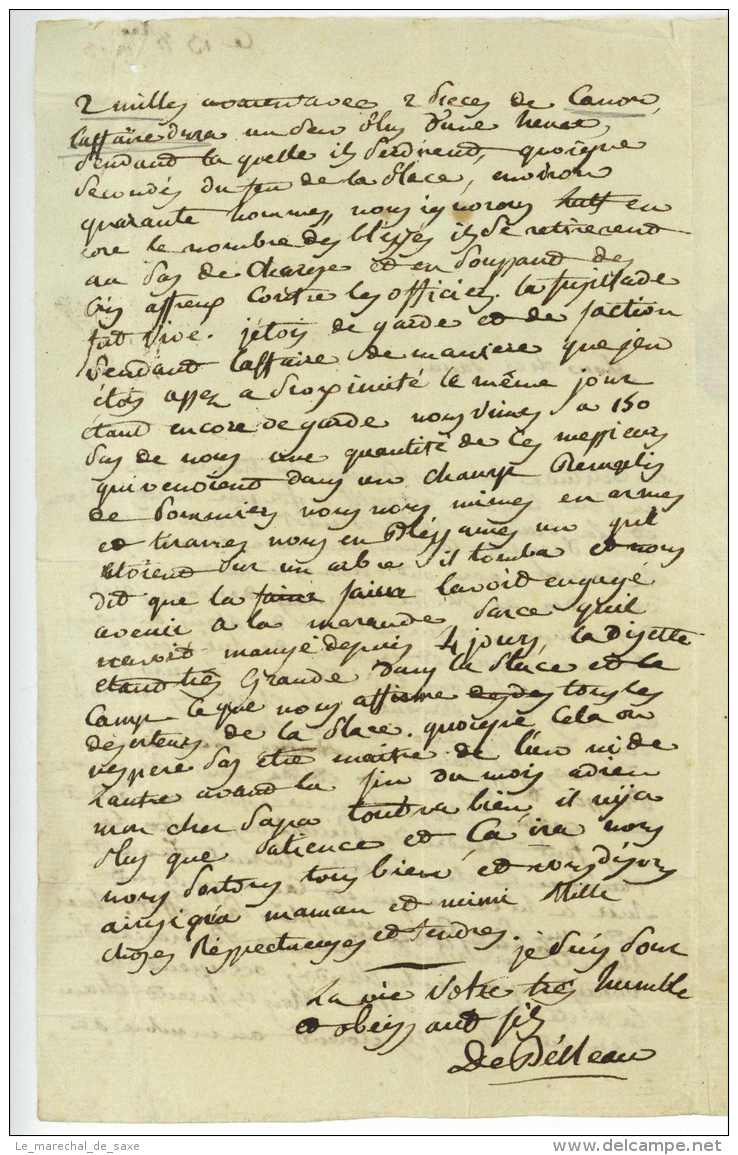 2 milles avec 2 pieces de Canon,
l'affaire dura un peu plus d'une heure,
pendant la quelle ils perdirent, quoique
secondés du feu de la place, environ
quarante hommes, nous ignorons en
core le nombre des blessés ils se retirerent
au pas de charge et en poussant des
cris affreux contre les officiers. la fusillade
fut vive. j'etois de garde et de faction
pendant l'affaire de maniere que j'en
etois assez a proximité le même jour
etant encore de garde nous vimes a 150
pas de nous une quantité de ces messieurs
qui venoient dans un champ Remplis
de pommiers nous nous mimes en armes
et tirames nous en Blessames un qui
etoient sur un arbre il tomba et nous
dit que la faim l'avoit engagé
a venir a la maraude parce qu'il
n'avoit mangé depuis 4 jours, la disette
etant très Grande dans la place et le
Camp ce que nous affirme tous les
deserteurs de la place. quoique cela on
n'espere pas etre maitre de l'un ni de
l'autre avant la fin du mois adieu
mon cher papa tout va bien, il n'y a
plus que patience et Ça ira nous
nous portons tous bien et vous disons
ainsi qu'a maman et mimi Mille
choses Respectueuses et tendres.
je suis pour
la vie votre très humble
et obeissant fils
De Pelleau
Le_marechal_de_saxe
delcampe.net